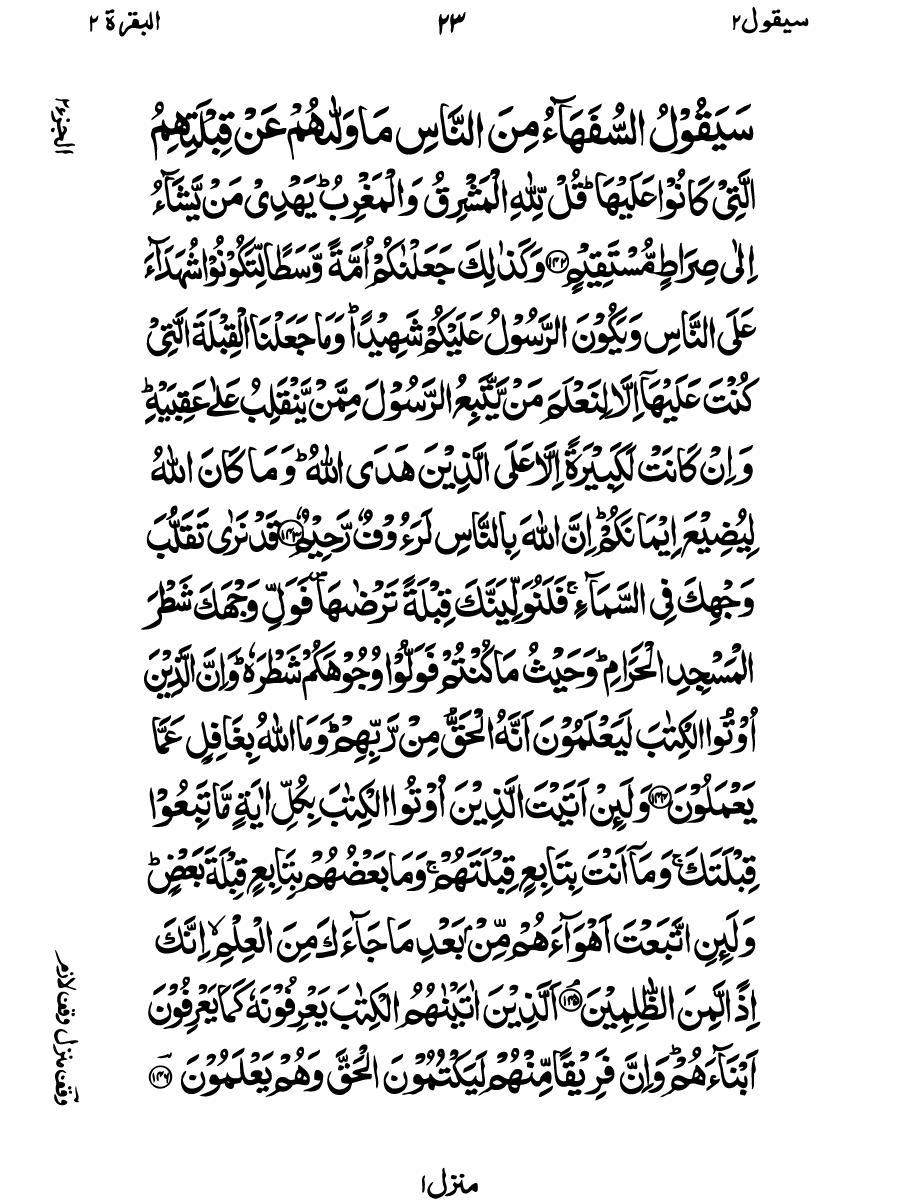 سيقول٢ ٢٣ البقرة ٢
الجزء٢
سَيَقُوْلُ السُّفَهَآءُ مِنَ النَّاسِ مَا وَلّٰىهُمْ عَنْ قِبْلَتِهِمُ
الَّتِيْ كَانُوْا عَلَيْهَا ؕ قُلْ لِّلّٰهِ الْمَشْرِقُ وَالْمَغْرِبُ ؕ يَهْدِيْ مَنْ يَّشَآءُ
اِلٰى صِرَاطٍ مُّسْتَقِيْمٍ ﴿١٤٢﴾ وَكَذٰلِكَ جَعَلْنٰكُمْ اُمَّةً وَّسَطًا لِّتَكُوْنُوْا شُهَدَآءَ
عَلَى النَّاسِ وَيَكُوْنَ الرَّسُوْلُ عَلَيْكُمْ شَهِيْدًا ؕ وَمَا جَعَلْنَا الْقِبْلَةَ الَّتِيْ
كُنْتَ عَلَيْهَآ اِلَّا لِنَعْلَمَ مَنْ يَّتَّبِعُ الرَّسُوْلَ مِمَّنْ يَّنْقَلِبُ عَلٰى عَقِبَيْهِ ؕ
وَاِنْ كَانَتْ لَكَبِيْرَةً اِلَّا عَلَى الَّذِيْنَ هَدَى اللّٰهُ ؕ وَمَا كَانَ اللّٰهُ
لِيُضِيْعَ اِيْمَانَكُمْ ؕ اِنَّ اللّٰهَ بِالنَّاسِ لَرَءُوْفٌ رَّحِيْمٌ ﴿١٤٣﴾ قَدْ نَرٰى تَقَلُّبَ
وَجْهِكَ فِي السَّمَآءِ ۚ فَلَنُوَلِّيَنَّكَ قِبْلَةً تَرْضٰىهَا ۪ فَوَلِّ وَجْهَكَ شَطْرَ
الْمَسْجِدِ الْحَرَامِ ؕ وَحَيْثُ مَا كُنْتُمْ فَوَلُّوْا وُجُوْهَكُمْ شَطْرَهٗ ؕ وَاِنَّ الَّذِيْنَ
اُوْتُوا الْكِتٰبَ لَيَعْلَمُوْنَ اَنَّهُ الْحَقُّ مِنْ رَّبِّهِمْ ؕ وَمَا اللّٰهُ بِغَافِلٍ عَمَّا
يَعْمَلُوْنَ ﴿١٤٤﴾ وَلَئِنْ اَتَيْتَ الَّذِيْنَ اُوْتُوا الْكِتٰبَ بِكُلِّ اٰيَةٍ مَّا تَبِعُوْا
قِبْلَتَكَ ۚ وَمَآ اَنْتَ بِتَابِعٍ قِبْلَتَهُمْ ۚ وَمَا بَعْضُهُمْ بِتَابِعٍ قِبْلَةَ بَعْضٍ ؕ
وَلَئِنِ اتَّبَعْتَ اَهْوَآءَهُمْ مِّنْۢ بَعْدِ مَا جَآءَكَ مِنَ الْعِلْمِ ۙ اِنَّكَ
اِذًا لَّمِنَ الظّٰلِمِيْنَ ﴿١٤٥﴾ۘ اَلَّذِيْنَ اٰتَيْنٰهُمُ الْكِتٰبَ يَعْرِفُوْنَهٗ كَمَا يَعْرِفُوْنَ
اَبْنَآءَهُمْ ؕ وَاِنَّ فَرِيْقًا مِّنْهُمْ لَيَكْتُمُوْنَ الْحَقَّ وَهُمْ يَعْلَمُوْنَ ﴿١٤٦﴾ؔ
وقف لازم
وقف منزل
منزل١